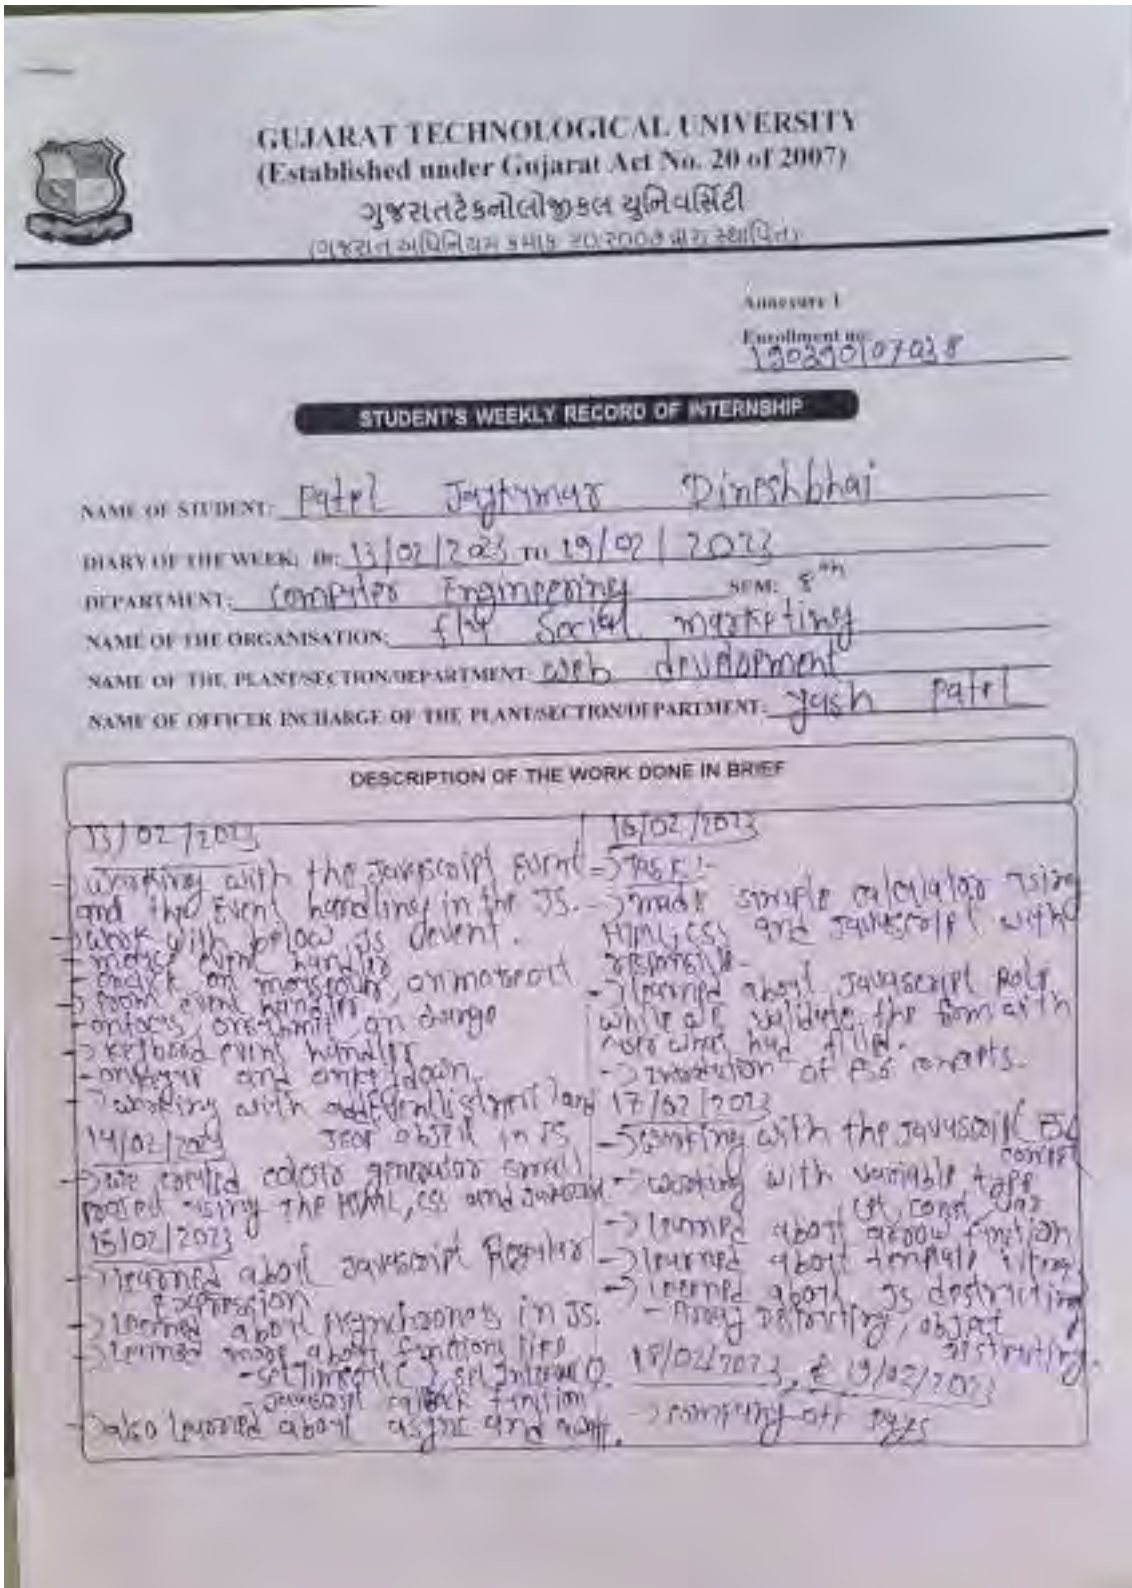 GUJARAT TECHNOLOGICAL UNIVERSITY
(Established under Gujarat Act No. 20 of 2007)
ગુજરાતટેકનોલોજીકલ યુનિવર્સિટી
(ગુજરાત અધિનિયમ ક્રમાંક ૨૦/૨૦૦૭ દ્વારા સ્થાપિત)
Annexure 1
Enrollment no:
190390107038
STUDENT'S WEEKLY RECORD OF INTERNSHIP
NAME OF STUDENT: Patel Jaykumar Dineshbhai
DIARY OF THE WEEK: Dt: 13/02/2023 TO 19/02/2023
DEPARTMENT: Computer Engineering SEM: 8th
NAME OF THE ORGANISATION: Social marketing
NAME OF THE PLANT/SECTION/DEPARTMENT: web development
NAME OF OFFICER INCHARGE OF THE PLANT/SECTION/DEPARTMENT: Yash Patel
DESCRIPTION OF THE WORK DONE IN BRIEF
13/02/2023
-> working with the Javascript Event
and the Event handling in the JS.
-> work with below JS event.
- mouse event handler
- onclick, on mouseover, onmouseout
-> form event handler
- onfocus, onsubmit, on change
-> keyboard event handler
- onkeyup and onkeydown.
-> working with and
14/02/2023 object in JS
-> we created color generator small
using the HTML, CSS and
15/02/2023
-> learned about Javascript Regular
Expression
-> learned about Asynchronous in JS.
-> learned more about functions like
- setTimeout(), setInterval()
- Javascript callback function
-> also learned about async and await.
16/02/2023
-> Task :-
-> made simple calculator using
HTML, CSS and Javascript with
responsive.
-> learned about Javascript Role,
while we validate the form with
user had filled.
-> of ES6 concepts.
17/02/2023
-> working with the Javascript ES6
concept
-> working with variable type
let, const, var
-> learned about arrow function
-> learned about template
-> learned about JS destructing
- Array destructing, object
destructing.
18/02/2023 & 19/02/2023
-> company off days